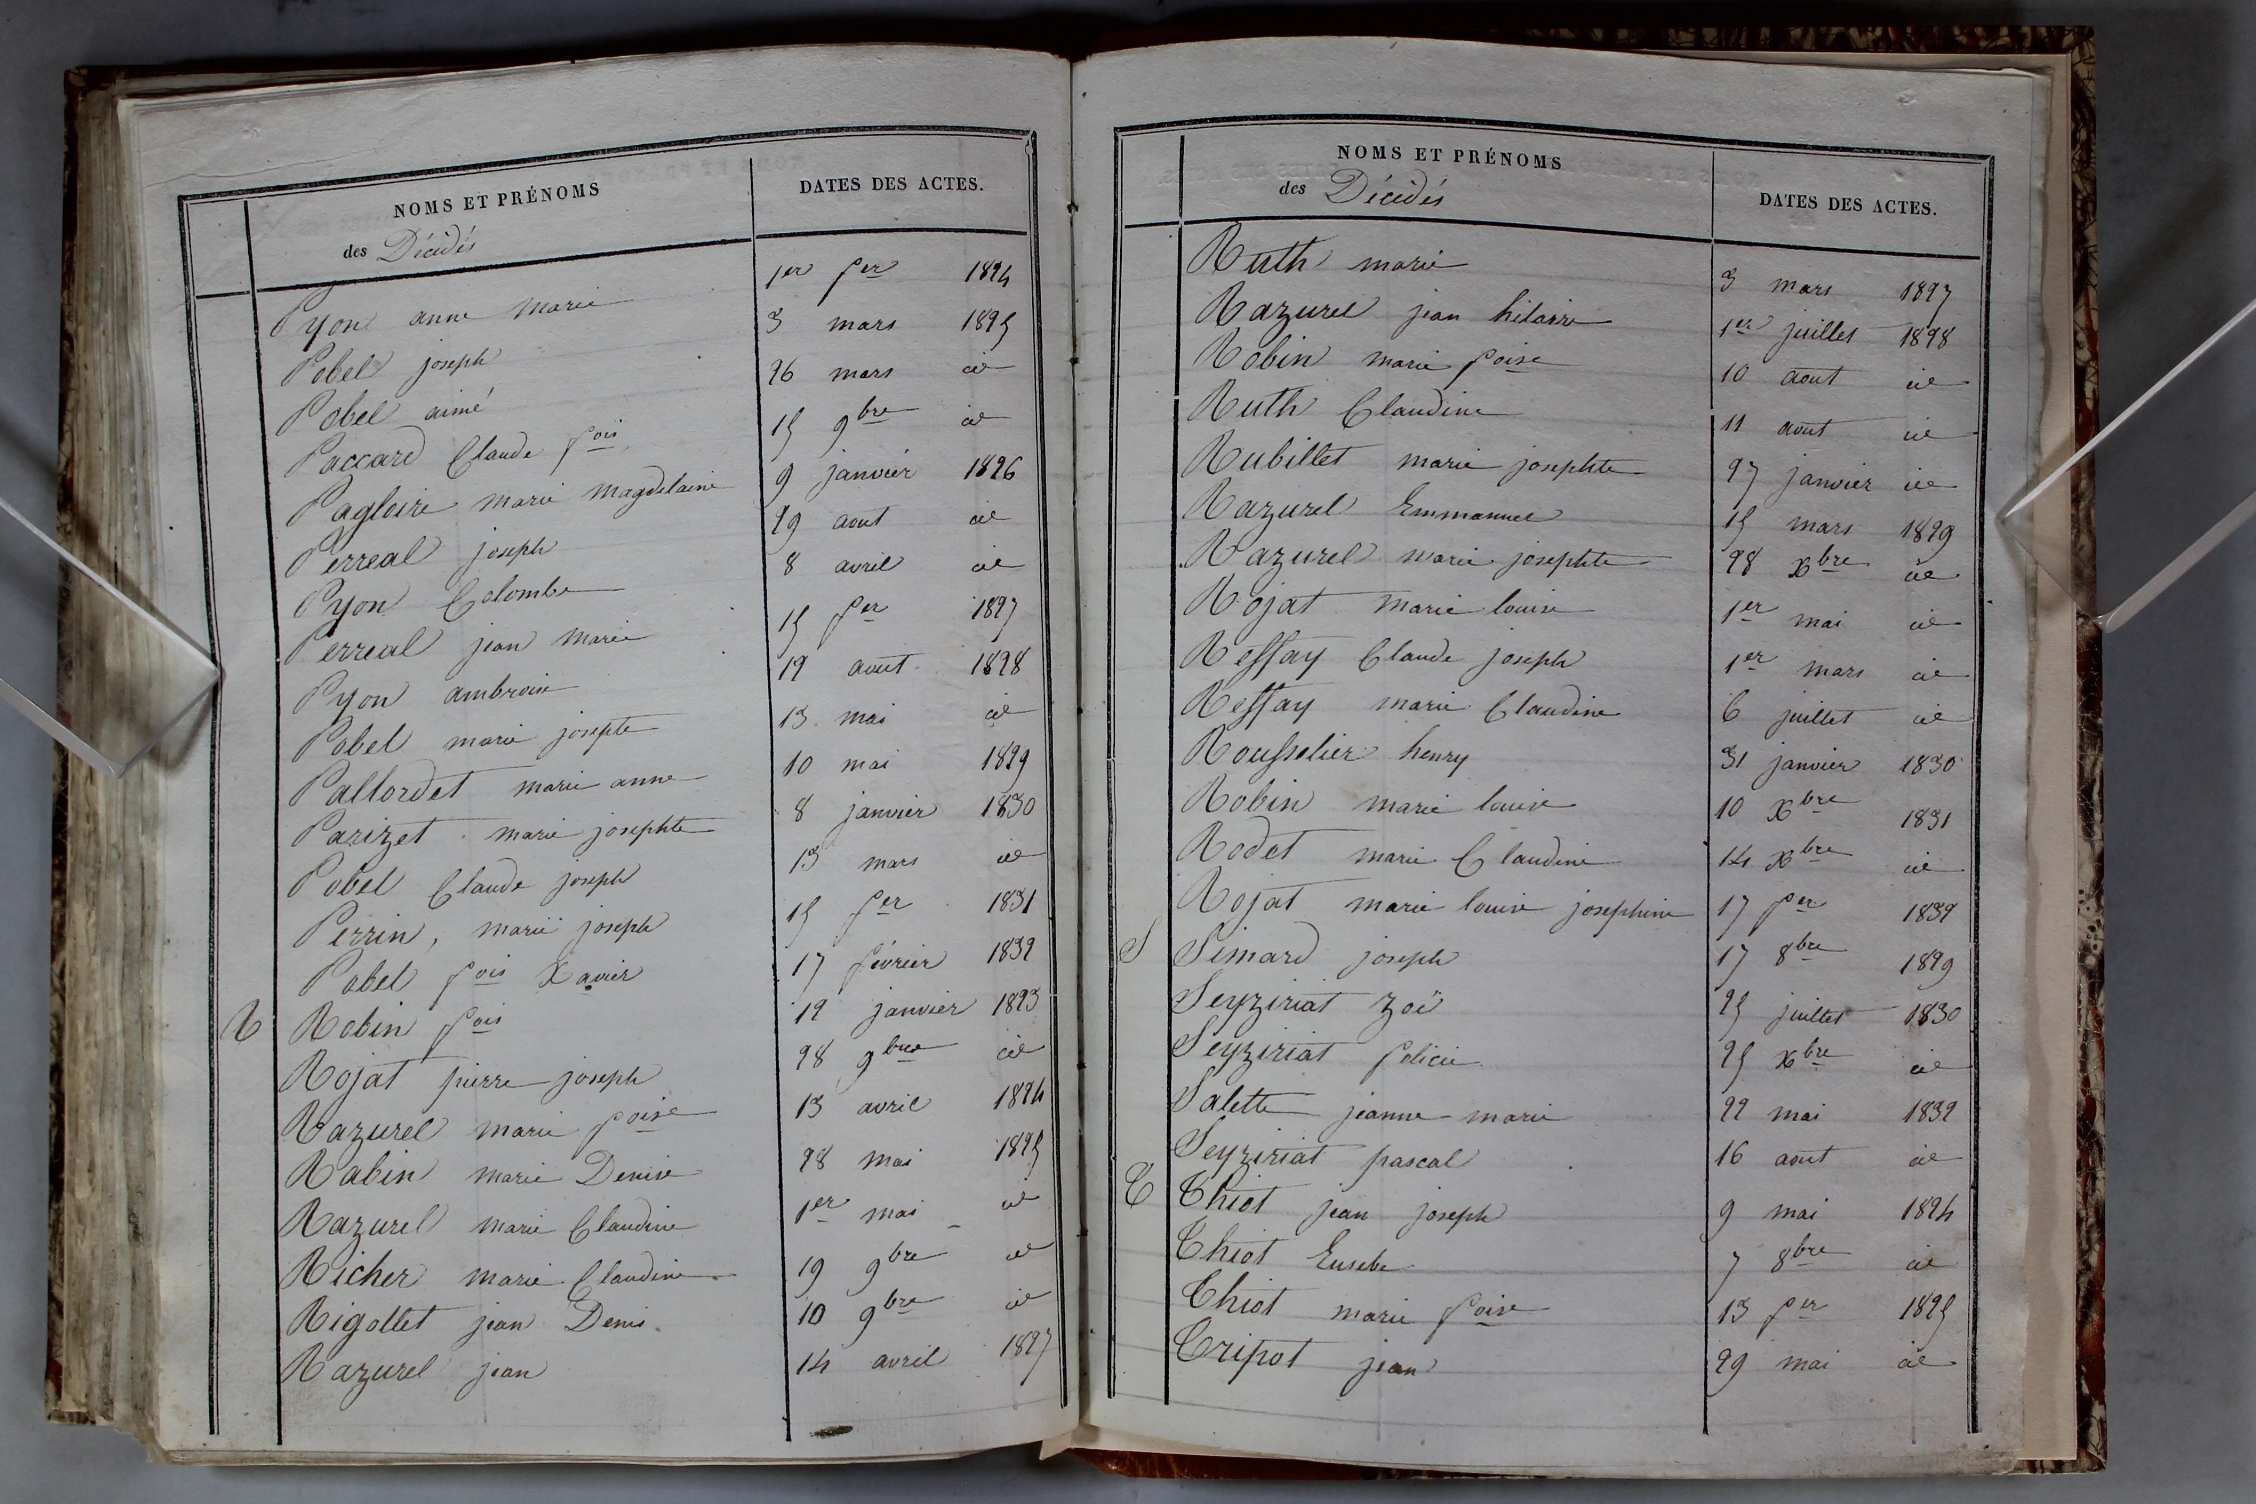 NOMS ET PRÉNOMS DATES DES ACTES.
des Décédés
Pyon anne marie 1er fer 1824
Pobel joseph 3 mars 1825
Pobel aimé 26 mars id
Paccard Claude fois 15 9bre id
Pagloire marie magdelaine 9 janvier 1826
Perreal joseph 29 aout id
Pyon Colombe 8 avril id
Perreal jean marie 15 fer 1827
Pyon ambroise 12 aout 1828
Pobel marie josepte 13 mai id
Pallordet marie anne 10 mai 1829
Parizet marie josephte 8 janvier 1830
Pobel Claude joseph 13 mars id
Perrin, marie joseph 15 fer 1831
Pobel fois Xavier 17 février 1832
R Robin fois 12 janvier 1823
Rojat pierre joseph 28 9bre id
Razurel marie foise 13 avril 1824
Rabin marie Denise 28 mai 1825
Razurel marie Claudine 1er mai id
Richer marie Claudine 19 9bre id
Rigollet jean Denis 10 9bre id
Razurel jean 14 avril 1827
NOMS ET PRÉNOMS DATES DES ACTES.
des Décédés
Ruth marie 3 mars 1827
Razurel jean hilaire 1er juillet 1828
Robin marie foise 10 aout id
Ruth Claudine 11 aout id
Rubillet marie josephte 27 janvier id
Razurel Emmanuel 15 mars 1829
Razurel marie josephte 28 Xbre id
Rojat marie louise 1er mai id
Reffay Claude joseph 1er mars id
Reffay marie Claudine 6 juillet id
Rousselier henry 31 janvier 1830
Robin marie louise 10 Xbre 1831
Rodet marie Claudine 14 Xbre id
Rojat marie louise josephine 17 fer 1832
S Simard joseph 17 8bre 1829
Seyziriat Zoé 25 juillet 1830
Seyziriat felicie 25 Xbre id
Salette jeanne marie 22 mai 1832
Seyziriat pascal 16 aout id
T Thiot jean joseph 9 mai 1824
Thiot Eusebe 7 8bre id
Thiot marie foise 13 fer 1825
Tripot jean 29 mai id